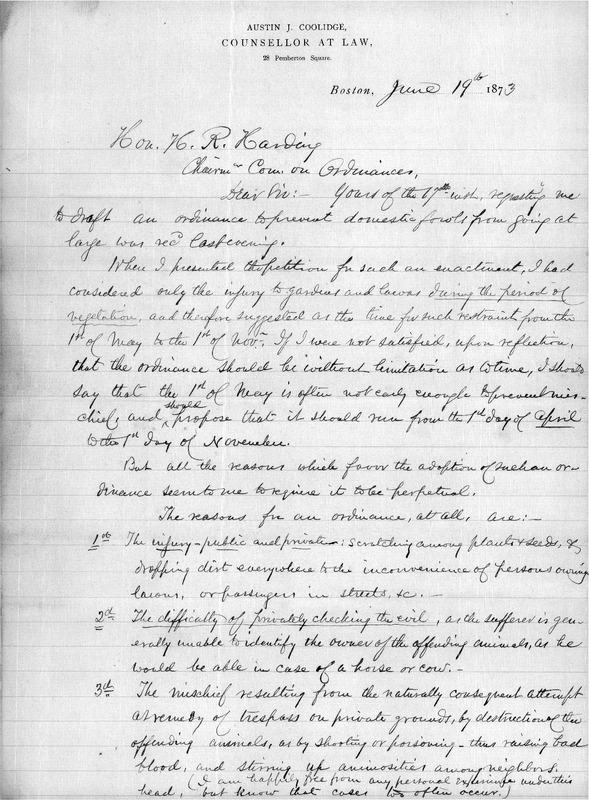 AUSTIN J. COOLIDGE,
COUNSELLOR AT LAW,
28 Pemberton Square.
Boston, June 19th 1873
Hon. H. R. Harding
Chairmn Com. on Ordinances,
Dear Sir:- Yours of the 17th inst. requesting me
to draft an ordinance to prevent domestic fowls from going at
large was recd last evening.
When I presented the petition for such an enactment, I had
considered only the injury to gardens and lawns during the period of
vegetation, and therefore suggested as the time for such restraint from the
1st of May to the 1st of Novr. If I were not satisfied, upon reflection,
that the ordinance should be without limitation as to time, I should
say that the 1st of May is often not early enough to prevent mis-
chief, and should propose that it should run from the 1st day of April
to the 1st day of November.
But all the reasons which favor the adoption of such an or-
dinance seem to me to require it to be perpetual.
The reasons for an ordinance, at all, are:-
1st The injury - public and private: scratching among plants & seeds, &
dropping dirt everywhere to the inconvenience of persons owning
lawns, or passengers in streets, &c. -
2d The difficulty of privately checking the evil, as the sufferer is gen-
erally unable to identify the owner of the offending animals, as he
would be able in case of a horse or cow. -
3d The mischief resulting from the naturally consequent attempt
at remedy of trespass on private grounds, by destruction of the
offending animals, as by shooting or poisoning - thus raising bad
blood, and stirring up animosities among neighbors.
(I am happily free from any personal experience under this
head, but know that cases too often occur.)